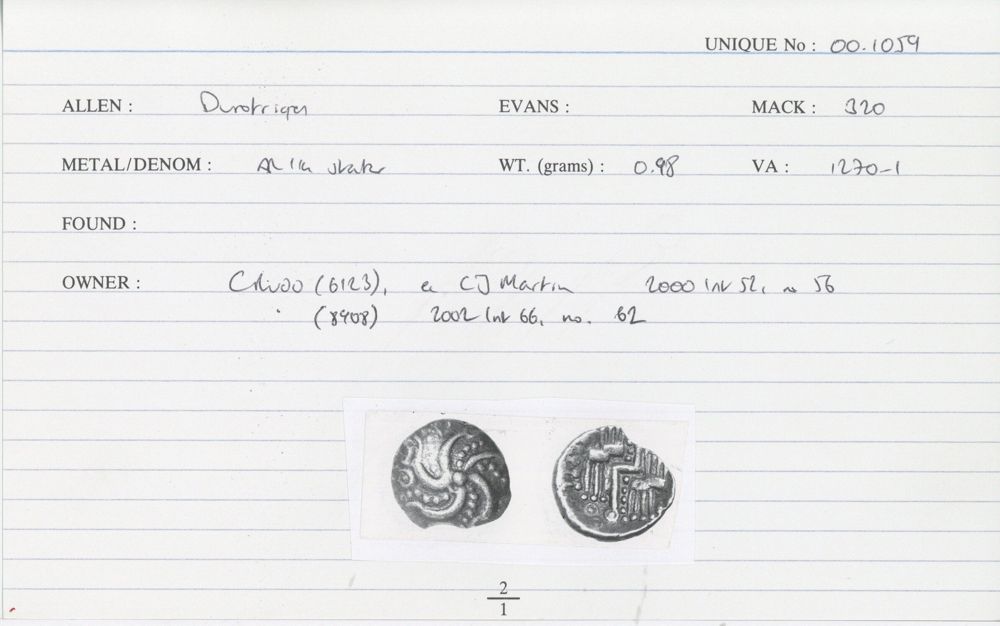 UNIQUE No : 00.1059
ALLEN : Durotriges EVANS : MACK : 320
METAL/DENOM : AR 1/4 stater WT. (grams) : 0.98 VA : 1270-1
FOUND :
OWNER : (6123), ex CJ Martin 2000 list 52, no 56
(8908) 2002 list 66, no. 62
2
1